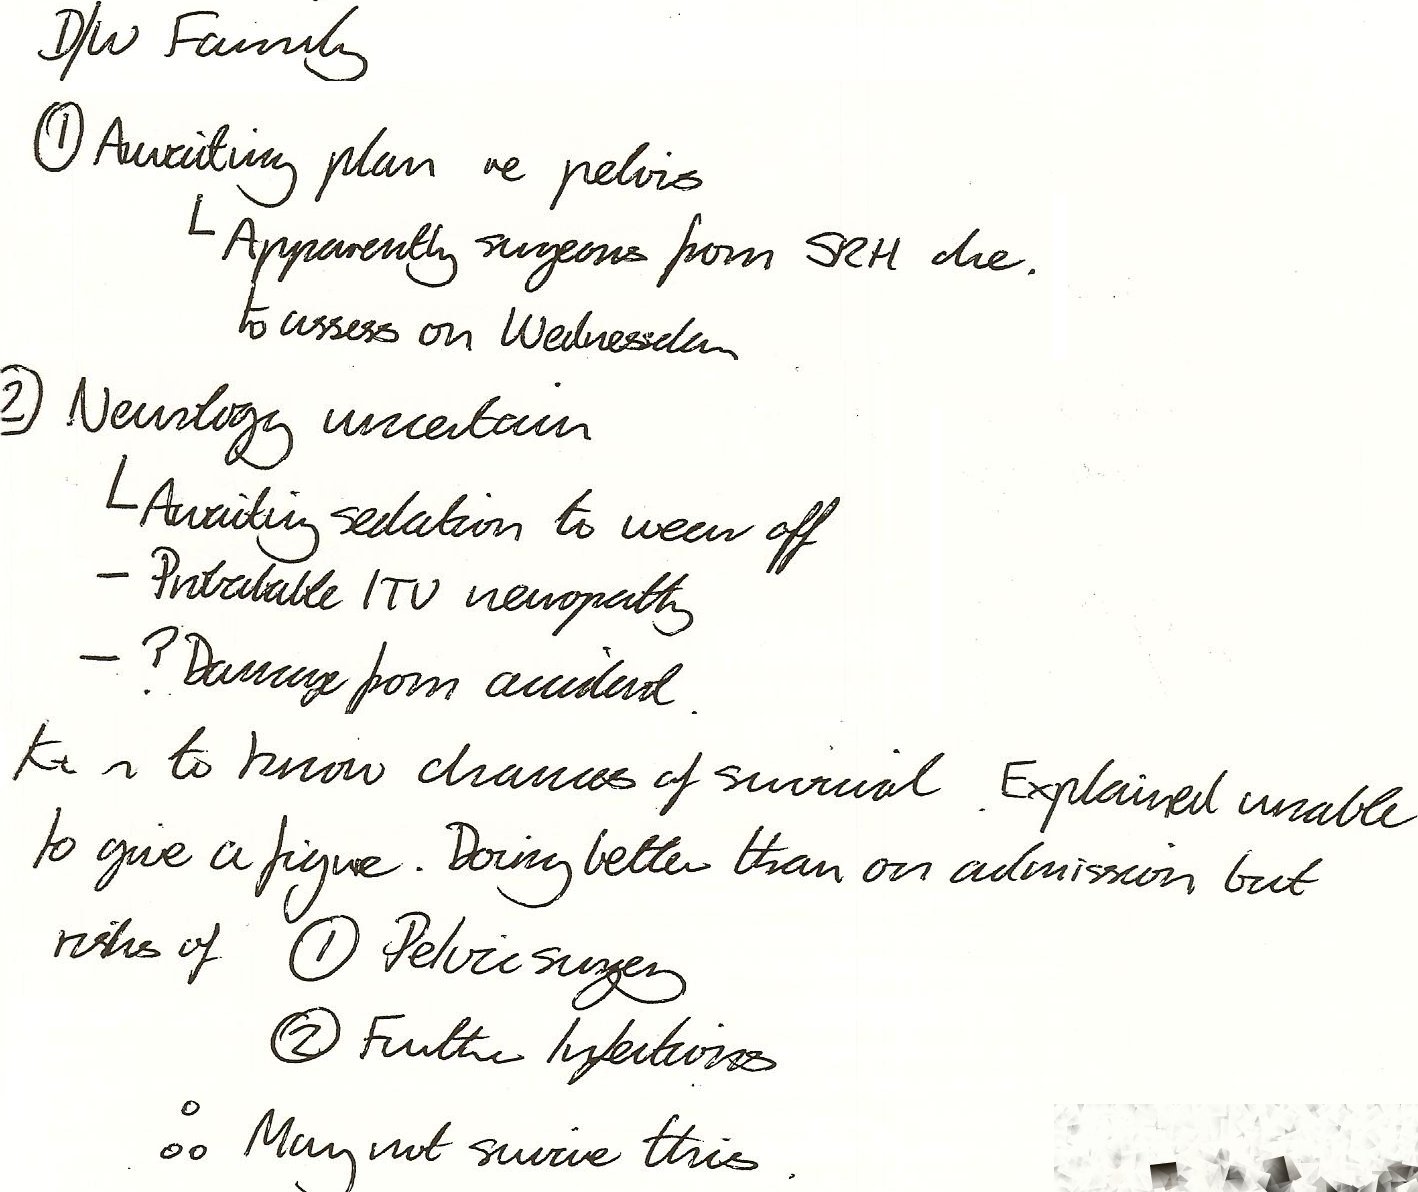 D/W Family
① Awaiting plan re pelvis
└ Apparently surgeons from SRH due.
to assess on Wednesday
② Neurology uncertain
└ Awaiting sedation to wear off
– Probable ITU neuropathy
– ? Damage from accident.
to know chances of survival. Explained unable
to give a figure. Doing better than on admission but
risks of ① Pelvic surgery
② Further Infections
∴ May not survive this.